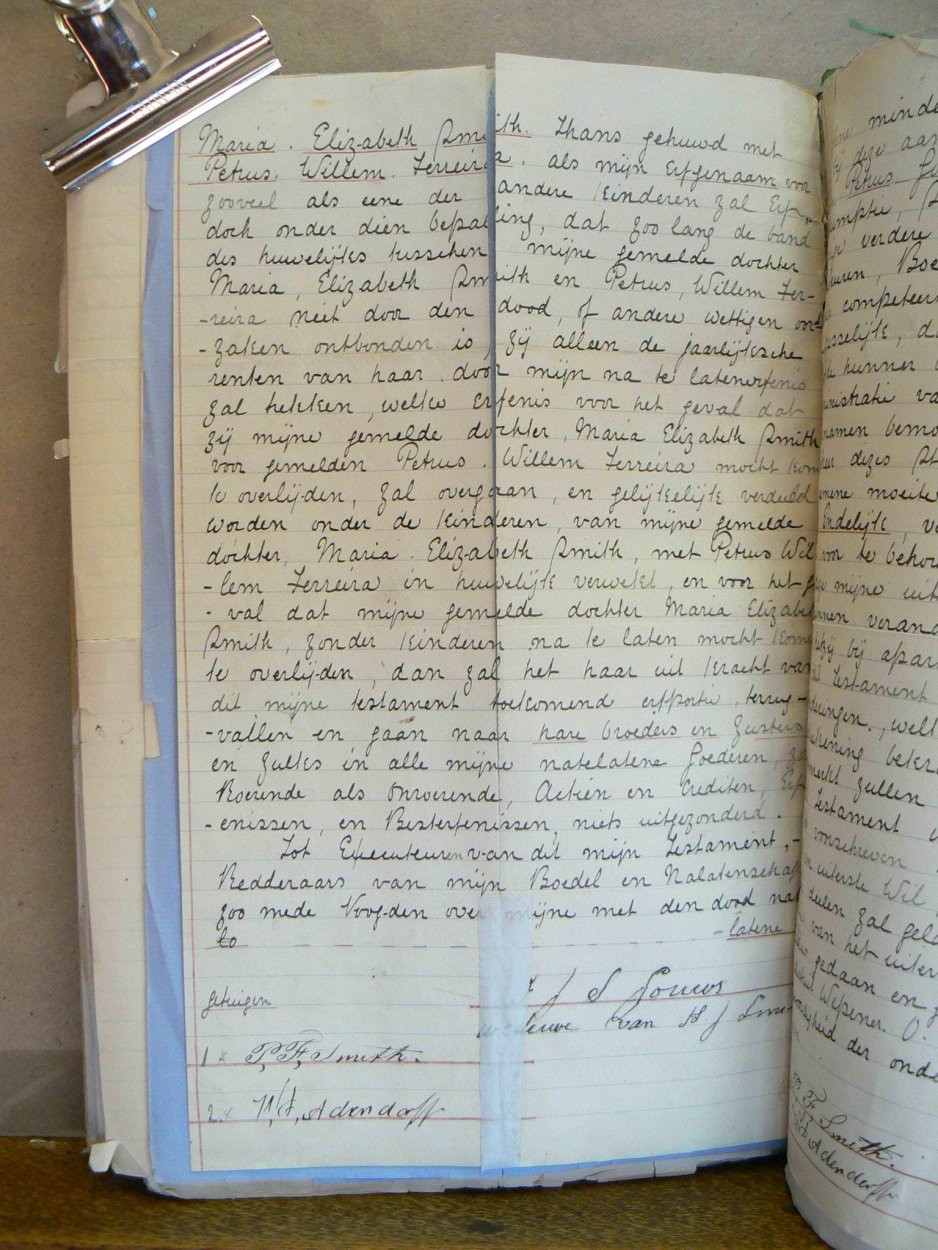 Maria. Elizabeth Smith. Thans gehuwd met
Petrus. Willem. Ferreira. als mijn Erfgenaam voor
zooveel als eene der andere Kinderen zal Erf-
doch onder dien bepaling, dat zoo lang de band
des huwelijks tusschen mijne gemelde dochter
Maria, Elizabeth Smith en Petrus, Willem Fer-
-reira neit door den dood, of andere wettigen oor-
-zaken ontbonden is, zij alleen de jaarlijksche
renten van haar. door mijn na te laten erfenis
zal trekken, welke erfenis voor het geval dat
zij mijne gemelde dochter, Maria Elizabeth Smith
voor gemelden Petrus. Willem Ferreira mocht kom
te overlijden, zal overgaan, en gelijkelijk verdeeld
worden onder de kinderen, van mijne gemelde
dochter, Maria. Elizabeth Smith, met Petrus Wil
-lem Ferreira in huwelijk verwekt, en voor het g
-val dat mijne gemelde dochter Maria Elizabet
Smith, zonder kinderen na te laten mocht kome
te overlijden, dan zal het haar uit kracht van
dit mijne testament toekomend erfportie, terug-
-vallen en gaan naar hare broeders en Zusters
en zulks in alle mijne natelatene Goederen, zo
Roerende als Onroerende, Actiën en Crediten, Erf
-enissen, en Besterfenissen, niets uitgezonderd.
Tot Executeuren van dit mijn Testament,-
Redderaars van mijn Boedel en Nalatenschap
zoo mede Voogden over mijne met den dood nat
to -latene
getuigen
J S Gouws
weduwe van H J Smi
1 x P, F, Smith.
2. x Adendorff
ne minde
deze aan
Petrus
verdere
Boe
competeer
hunner
namen
dezes
moeite
Endelijk, v
voor te behou
mijne uit
verand
bij apar
Testament
well
zullen
Testament
voorschreven
uiterste Wil
zal geld
van het uiter
gedaan en g
der onde
F, Smith.
Adendorff